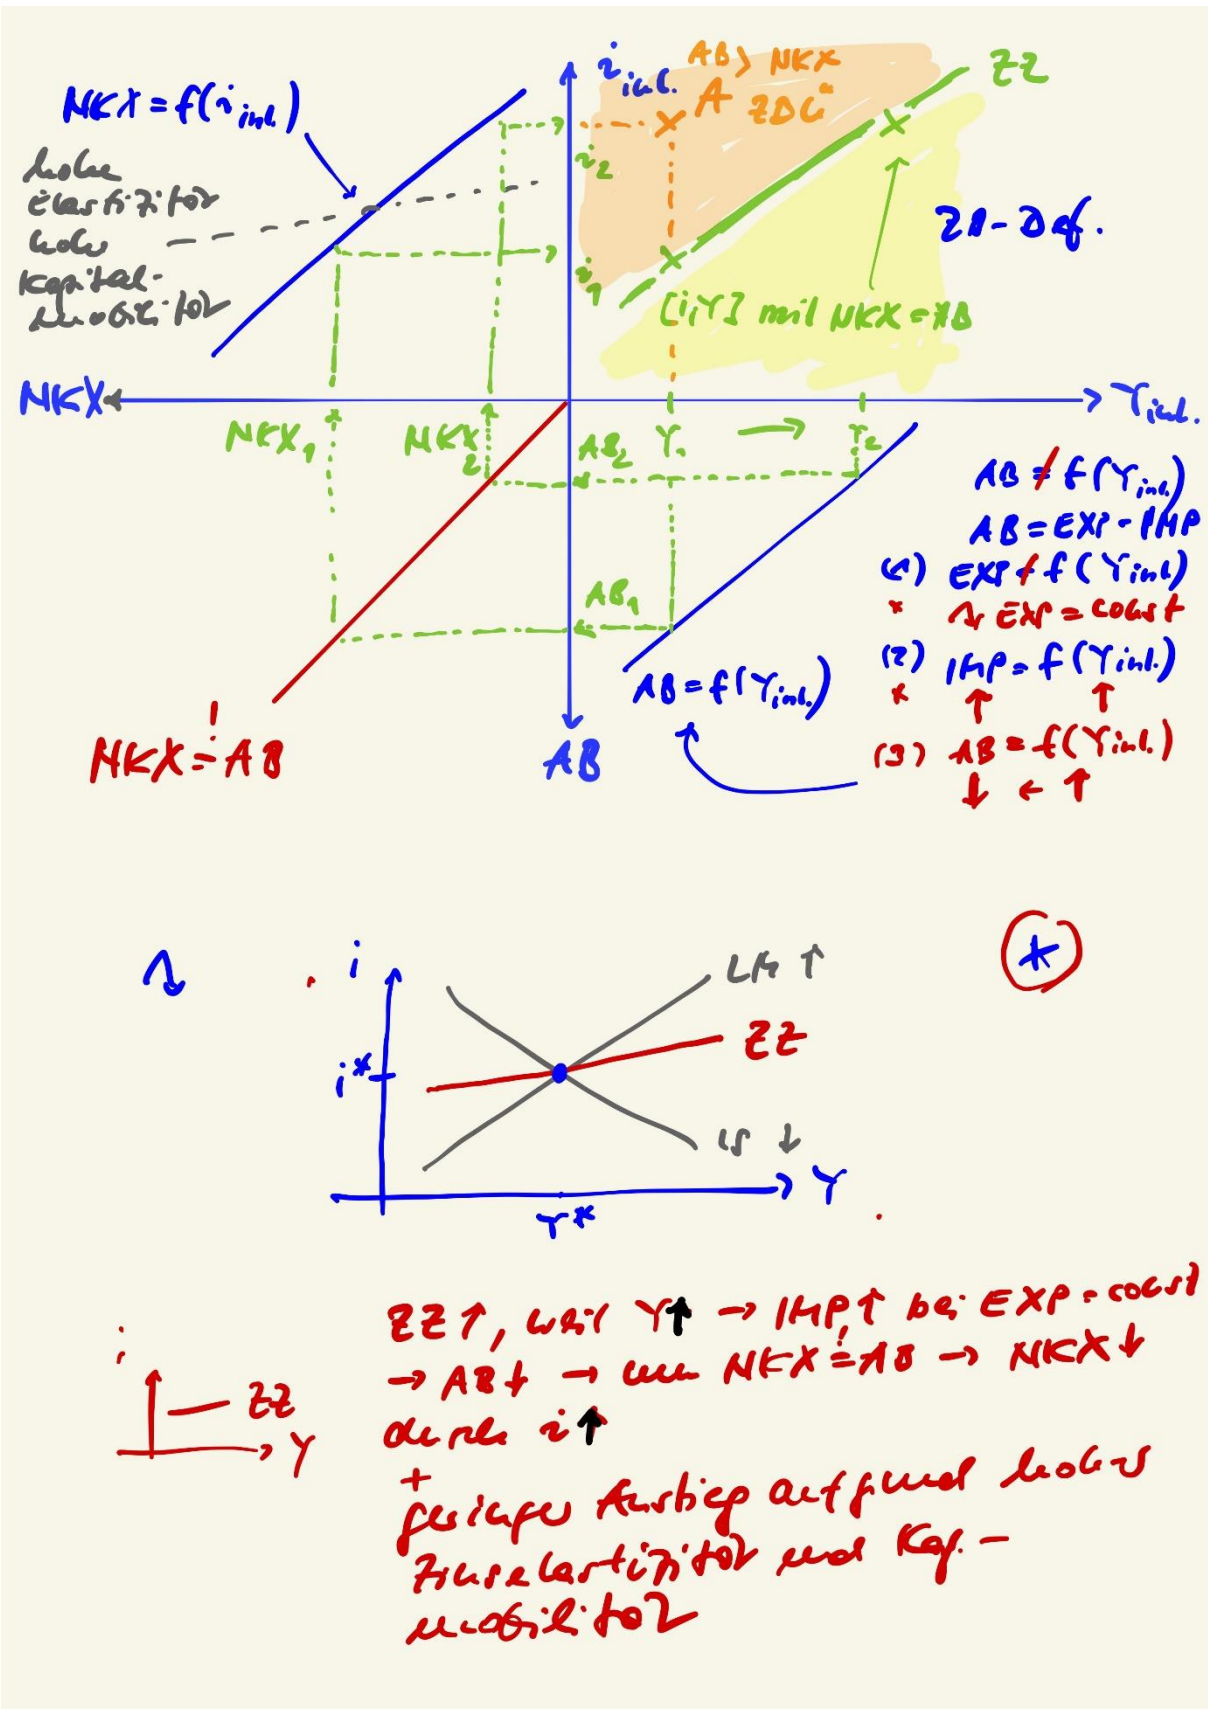 NKX = f(i inl.)
hohe
Elastizität
hohe
Kapital-
mobilität
i inl.
AB > NKX
A ZBÜ
ZZ
i2
i1
ZB-Def.
[i,Y] mit NKX = AB
NKX
NKX1
NKX2
AB2
Y1
→
Y2
Y inl.
AB1
AB ≠ f(Y inl.)
AB = EXP - IMP
(1) EXP ≠ f(Y inl.)
* ↷ EXP = const
(2) IMP = f(Y inl.)
* ↑ ↑
(3) AB = f(Y inl.)
↓ ← ↑
AB = f(Y inl.)
NKX =! AB
AB
↷
i
LM ↑
*
ZZ
i*
IS ↓
Y
Y*
ZZ↑, weil Y↑ → IMP↑ bei EXP = const
→ AB↓ → wenn NKX =! AB → NKX↓
durch i↑
+
geringer Anstieg aufgrund hoher
Zinselastizität und Kap.-
mobilität
i
ZZ
Y